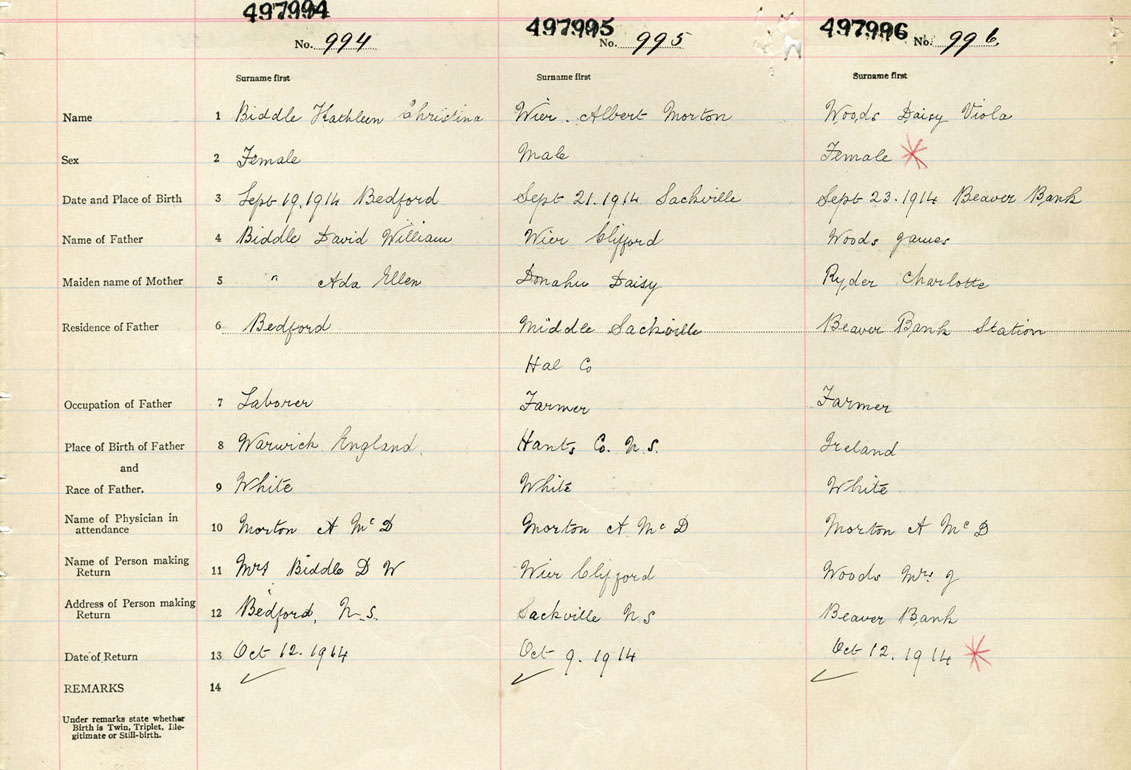 497994 497995 497996
No. 994 No. 995 No. 996
Surname first Surname first Surname first
Name 1 Biddle Kathleen Christina Wier. Albert Morton Woods Daisy Viola
Sex 2 Female Male Female
Date and Place of Birth 3 Sept 19.1914 Bedford Sept 21.1914 Sackville Sept 23.1914 Beaver Bank
Name of Father 4 Biddle David William Wier Clifford Woods James
Maiden name of Mother 5 " Ada Ellen Donahue Daisy Ryder Charlotte
Residence of Father 6 Bedford Middle Sackville Beaver Bank Station
Hal Co
Occupation of Father 7 Laborer Farmer Farmer
Place of Birth of Father 8 Warwick England. Hants Co. N.S. Ireland
and
Race of Father. 9 White White White
Name of Physician in
attendance 10 Morton A Mc D Morton A Mc D Morton A Mc D
Name of Person making
Return 11 Mrs Biddle D W Wier Clifford Woods Mrs J
Address of Person making
Return 12 Bedford, N.S. Sackville N S Beaver Bank
Date of Return 13 Oct 12.1914 Oct 9.1914 Oct 12.1914
REMARKS 14
Under remarks state whether
Birth is Twin, Triplet, Ille-
gitimate or Still-birth.